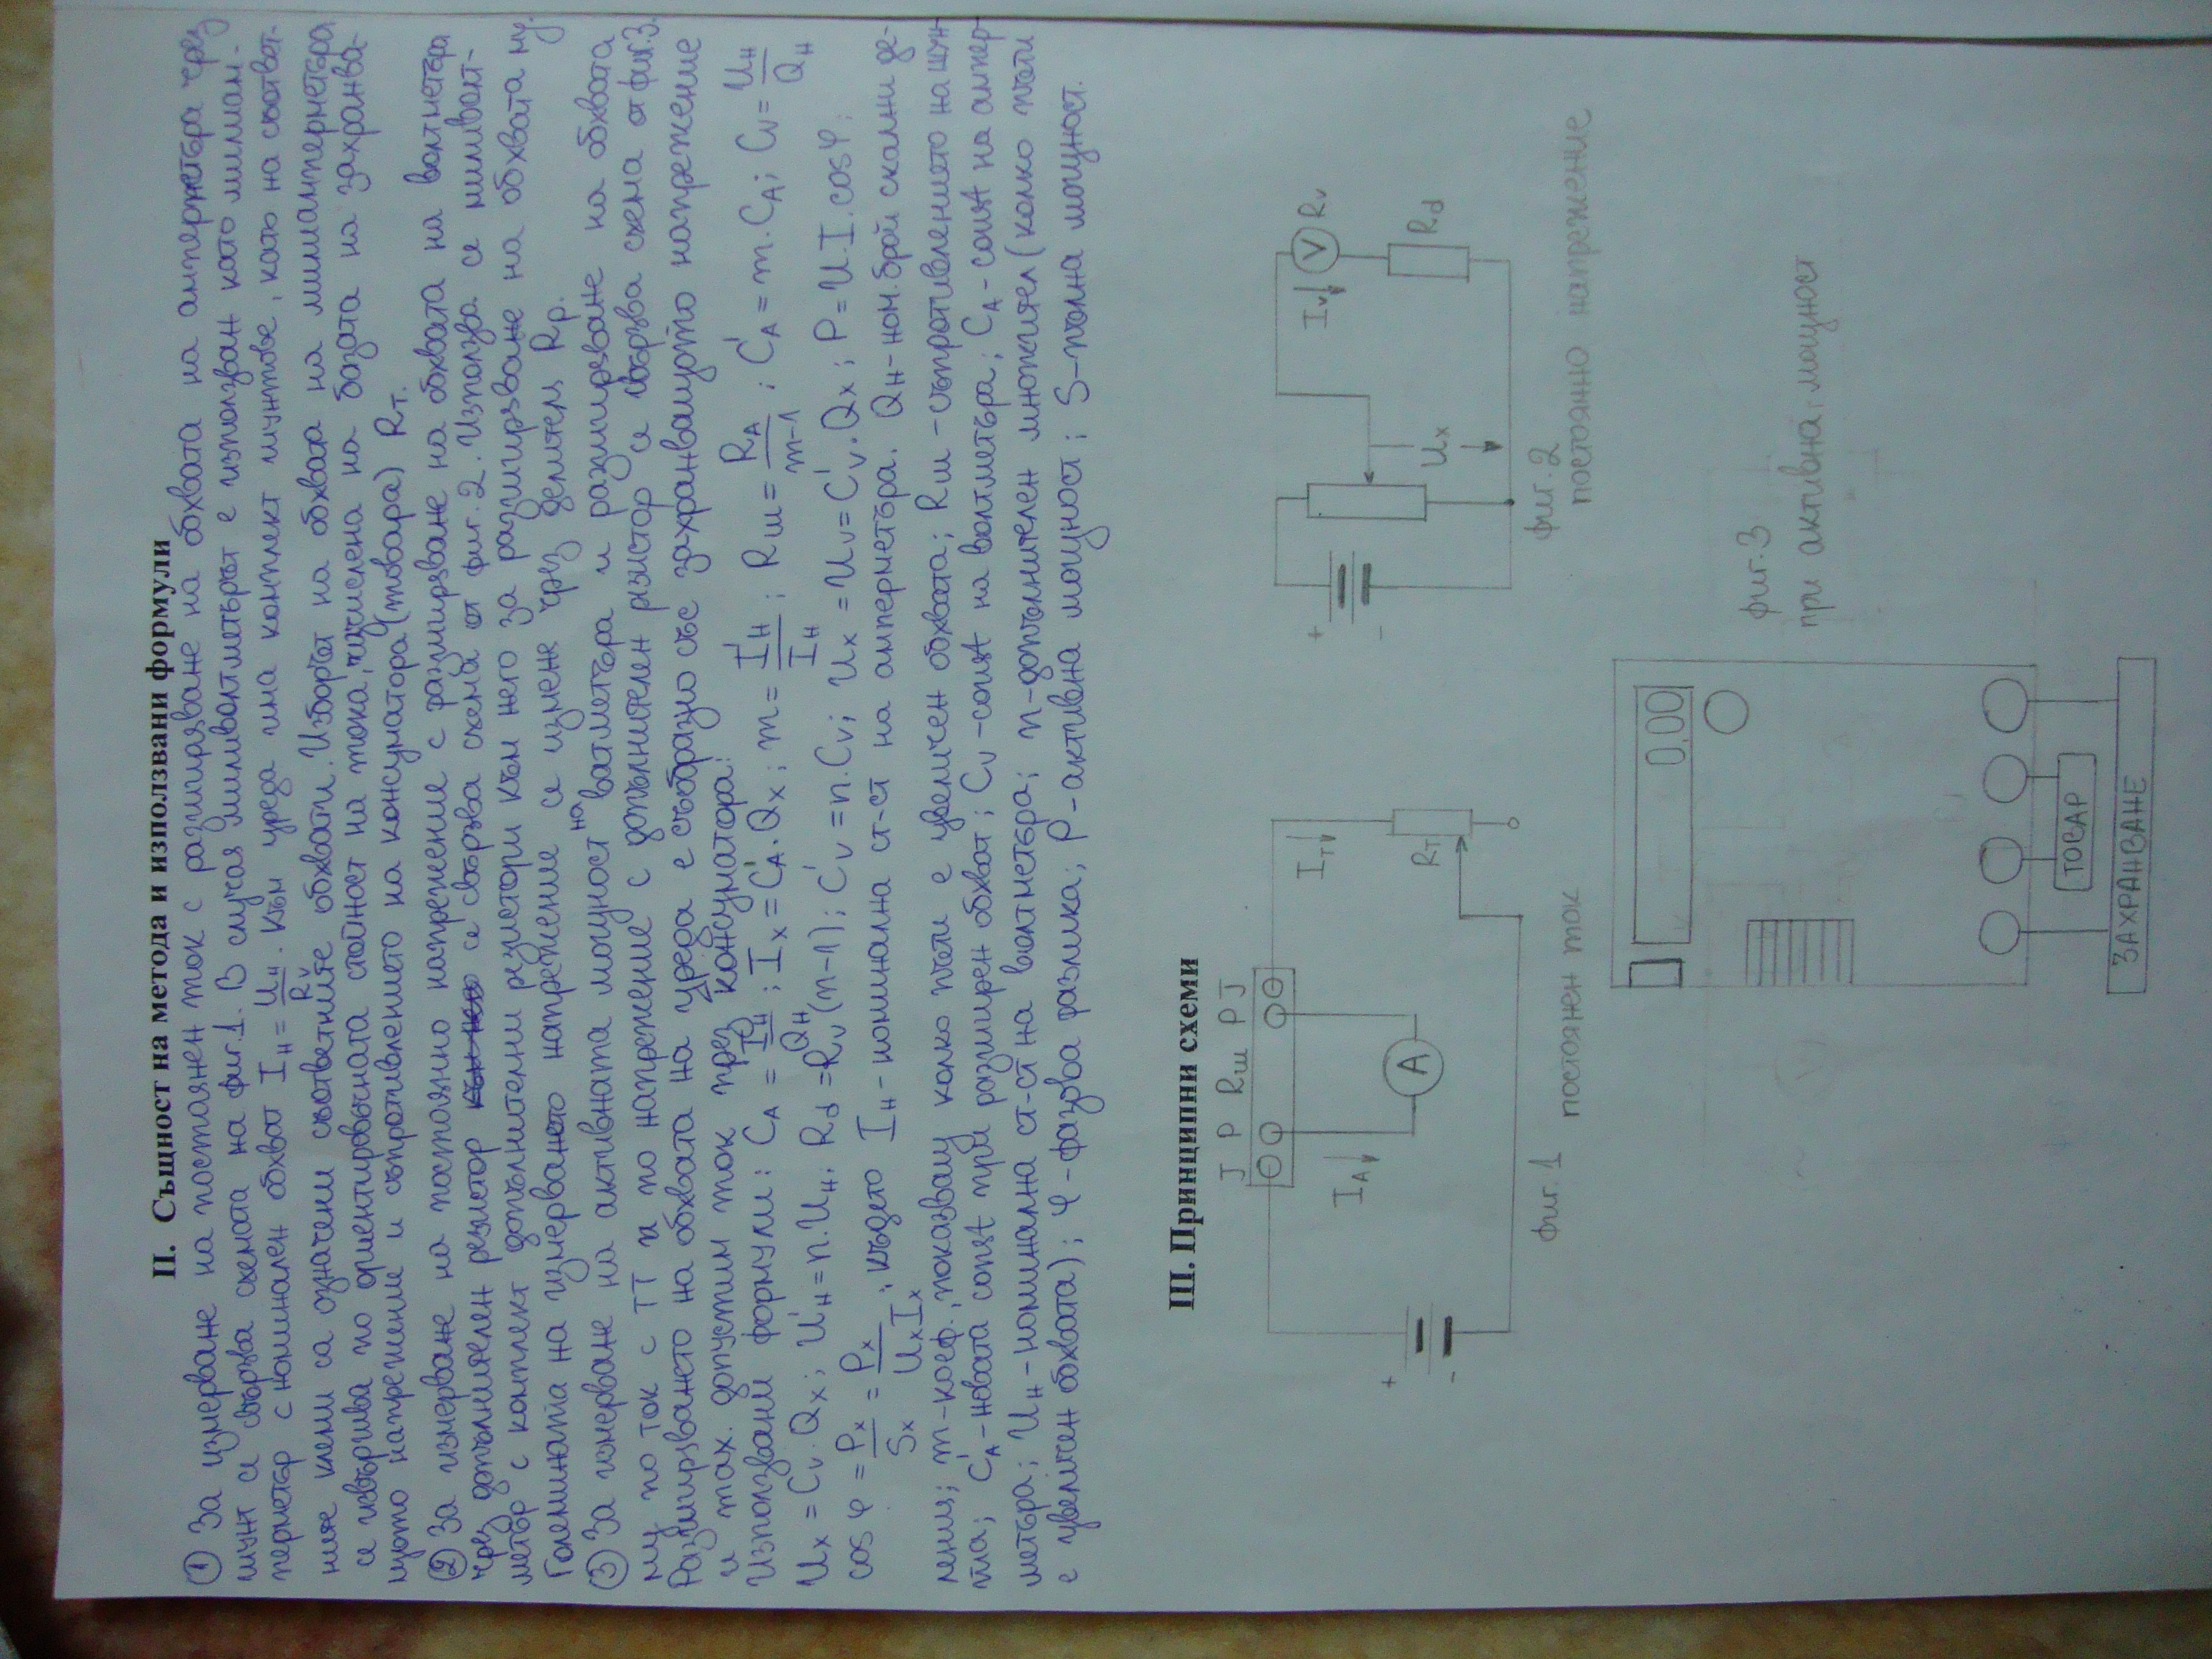 II. Същност на метода и използвани формули
① За измерване на постоянен ток с разширяване на обхвата на амперметъра чрез
шунт се свързва схемата на фиг.1. В случая миливолтметърът е използван като милиам-
перметър с номинален обхват Iн = Uн/Rv. Към уреда има комплект шунтове, като на съответ-
ните клеми са означени съответните обхвати. Изборът на обхвата на милиамперметъра
се извършва по ориентировъчната стойност на тока, изчислена на базата на захранва-
щото напрежение и съпротивлението на консуматора (товара) Rт.
② За измерване на постоянно напрежение с разширяване на обхвата на волтметъра
чрез допълнителен резистор се свързва схема от фиг. 2. Използва се миливолт-
метър с комплект допълнителни резистори към него за разширяване на обхвата му.
Големината на измерваното напрежение се измене чрез делителя Rр.
③ За измерване на активната мощност на ватметъра и разширяване на обхвата
му по ток с ТТ и по напрежение с допълнителен резистор се свързва схема от фиг.3.
Разширяването на обхвата на уреда е съобразно със захранващото напрежение
и max. допустим ток през консуматора.
Използвани формули: CA = Iн/Qн ; Ix = C'A.Qx ; m = I'н/Iн ; Rш = RA/m-1 ; C'A = m.CA ; Cv = Uн/Qн
Ux = Cv.Qx ; U'н = n.Uн ; Rd = Rv(n-1) ; C'v = n.Cv ; Ux = Uv = C'v.Qx ; P = U.I.cosφ ;
cosφ = Px/Sx = Px/UxIx ; където Iн - номинална ст-ст на амперметъра. Qн - ном. брой скални де-
ления; m - коеф., показващ колко пъти е увеличен обхвата; Rш - съпротивлението на шун-
та; C'A - новата const при разширен обхват; Cv - const на волтметъра; CA - const на ампер-
метъра; Uн - номинална ст-ст на волтметъра; n - допълнителен множител (колко пъти
е увеличен обхвата); φ - фазова разлика; P - активна мощност; S - пълна мощност.
III. Принципни схеми
J P Rш P J
IA
A
Iт
Rт
+
-
фиг. 1
постоянен ток
+
-
Ux
Iv
V
Rv
Rd
фиг. 2
постоянно напрежение
0,00
ТОВАР
ЗАХРАНВАНЕ
фиг. 3
при активна мощност